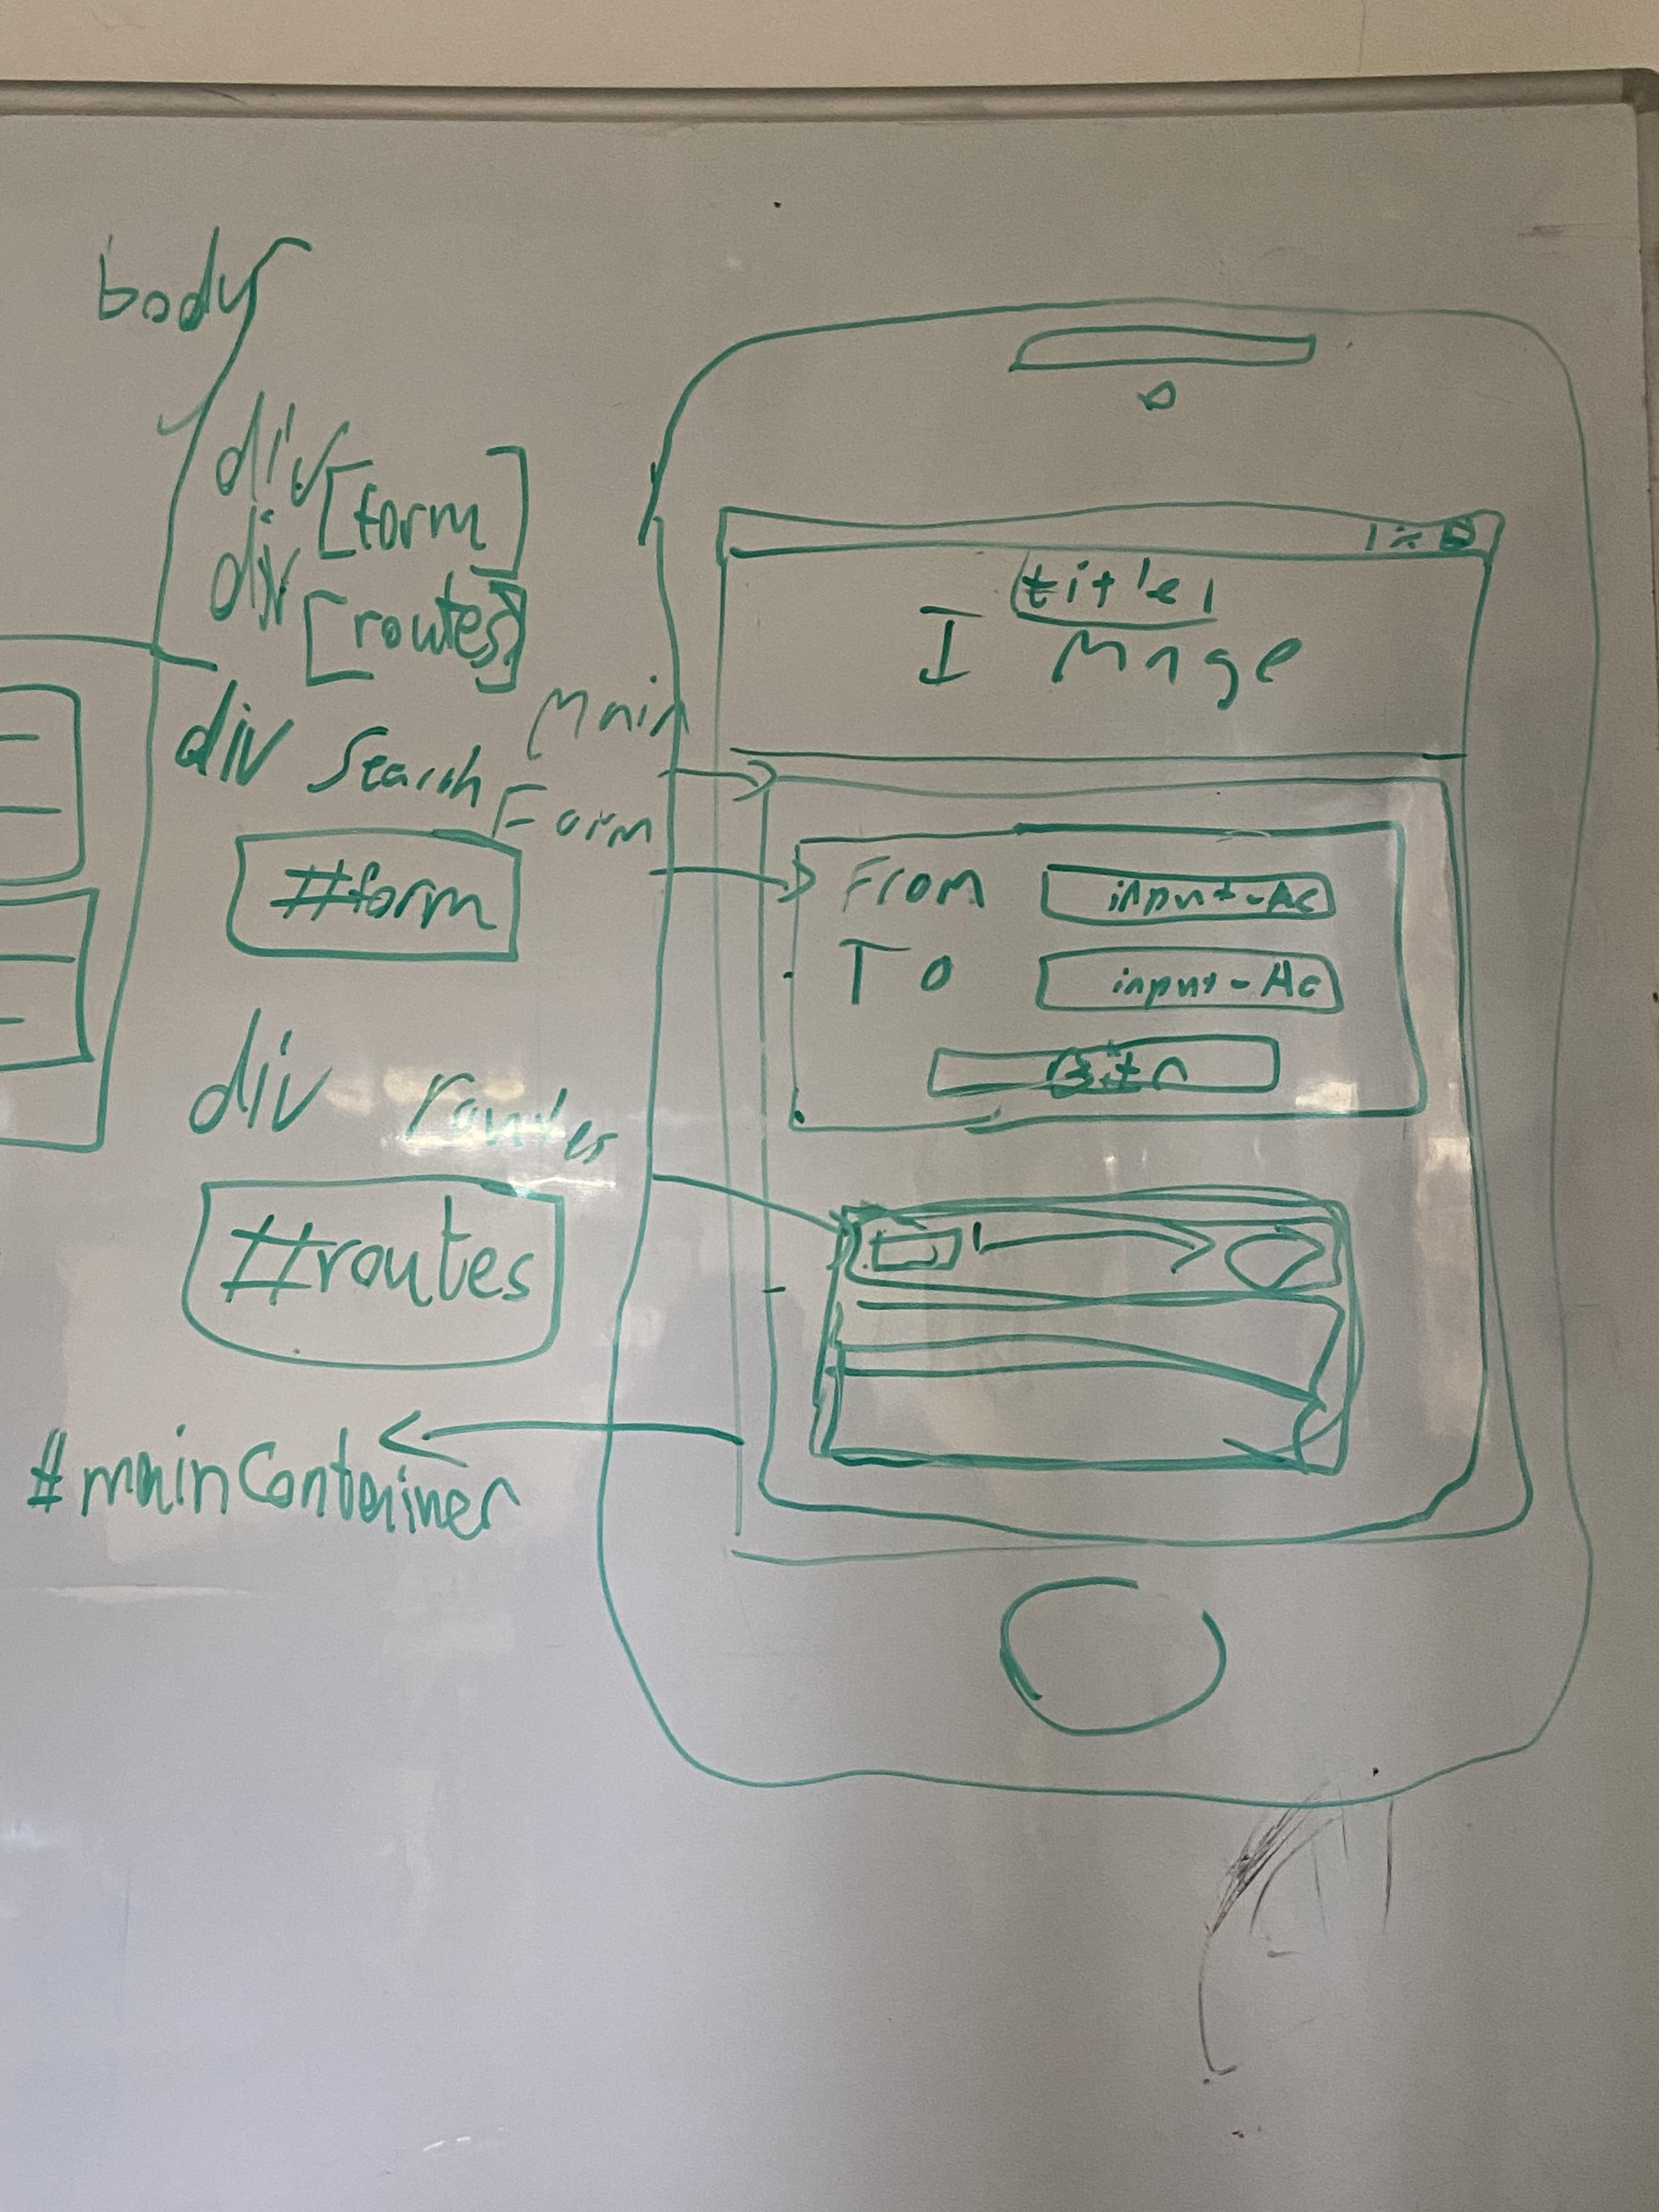 body
div [form]
div [routes]
div Search
#form
div routes
#routes
#mainContainer
Main
Form
title
I mage
From input-Ac
To input-Ac